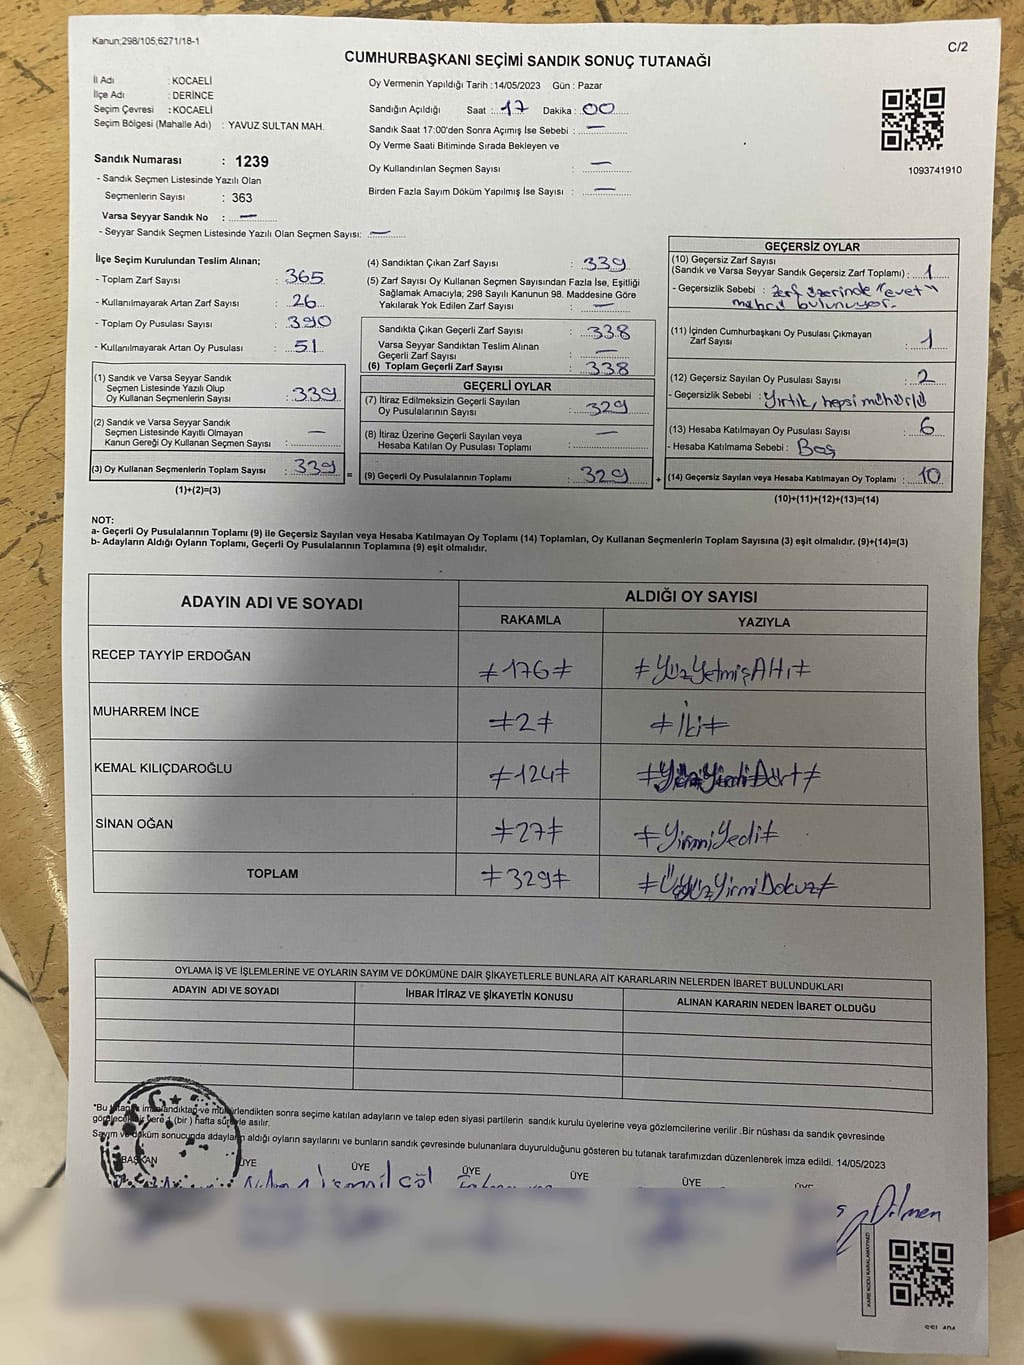 Kanun;298/105,6271/18-1
C/2
CUMHURBAŞKANI SEÇİMİ SANDIK SONUÇ TUTANAĞI
İl Adı : KOCAELİ
İlçe Adı : DERİNCE
Seçim Çevresi : KOCAELİ
Seçim Bölgesi (Mahalle Adı) : YAVUZ SULTAN MAH.
Sandık Numarası : 1239
- Sandık Seçmen Listesinde Yazılı Olan
Seçmenlerin Sayısı : 363
Varsa Seyyar Sandık No : —
- Seyyar Sandık Seçmen Listesinde Yazılı Olan Seçmen Sayısı: —
Oy Vermenin Yapıldığı Tarih : 14/05/2023 Gün : Pazar
Sandığın Açıldığı Saat : 17 Dakika : 00
Sandık Saat 17:00'den Sonra Açımış İse Sebebi : —
Oy Verme Saati Bitiminde Sırada Bekleyen ve
Oy Kullandırılan Seçmen Sayısı : —
Birden Fazla Sayım Döküm Yapılmış İse Sayısı : —
1093741910
İlçe Seçim Kurulundan Teslim Alınan;
- Toplam Zarf Sayısı : 365
- Kullanılmayarak Artan Zarf Sayısı : 26
- Toplam Oy Pusulası Sayısı : 390
- Kullanılmayarak Artan Oy Pusulası : 51
(1) Sandık ve Varsa Seyyar Sandık
Seçmen Listesinde Yazılı Olup
Oy Kullanan Seçmenlerin Sayısı : 339
(2) Sandık ve Varsa Seyyar Sandık
Seçmen Listesinde Kayıtlı Olmayan
Kanun Gereği Oy Kullanan Seçmen Sayısı : —
(3) Oy Kullanan Seçmenlerin Toplam Sayısı : 339 =
(1)+(2)=(3)
(4) Sandıktan Çıkan Zarf Sayısı : 339
(5) Zarf Sayısı Oy Kullanan Seçmen Sayısından Fazla İse, Eşitliği
Sağlamak Amacıyla; 298 Sayılı Kanunun 98. Maddesine Göre
Yakılarak Yok Edilen Zarf Sayısı : —
Sandıkta Çıkan Geçerli Zarf Sayısı : 338
Varsa Seyyar Sandıktan Teslim Alınan
Geçerli Zarf Sayısı : —
(6) Toplam Geçerli Zarf Sayısı : 338
GEÇERLİ OYLAR
(7) İtiraz Edilmeksizin Geçerli Sayılan
Oy Pusulalarının Sayısı : 329
(8) İtiraz Üzerine Geçerli Sayılan veya
Hesaba Katılan Oy Pusulaları Toplamı : —
(9) Geçerli Oy Pusulalarının Toplamı : 329 +
GEÇERSİZ OYLAR
(10) Geçersiz Zarf Sayısı
(Sandık ve Varsa Seyyar Sandık Geçersiz Zarf Toplamı) : 1
- Geçersizlik Sebebi : Zarf üzerinde "evet"
mührü bulunuyor.
(11) İçinden Cumhurbaşkanı Oy Pusulası Çıkmayan
Zarf Sayısı : 1
(12) Geçersiz Sayılan Oy Pusulası Sayısı : 2
- Geçersizlik Sebebi : Yırtık, hepsi mühürlü
(13) Hesaba Katılmayan Oy Pusulası Sayısı : 6
- Hesaba Katılmama Sebebi : Boş
(14) Geçersiz Sayılan veya Hesaba Katılmayan Oy Toplamı : 10
(10)+(11)+(12)+(13)=(14)
NOT:
a- Geçerli Oy Pusulalarının Toplamı (9) ile Geçersiz Sayılan veya Hesaba Katılmayan Oy Toplamı (14) Toplamları, Oy Kullanan Seçmenlerin Toplam Sayısına (3) eşit olmalıdır. (9)+(14)=(3)
b- Adayların Aldığı Oyların Toplamı, Geçerli Oy Pusulalarının Toplamına (9) eşit olmalıdır.
ADAYIN ADI VE SOYADI ALDIĞI OY SAYISI
RAKAMLA YAZIYLA
RECEP TAYYİP ERDOĞAN ≠176≠ ≠YüzYetmişAltı≠
MUHARREM İNCE ≠2≠ ≠İki≠
KEMAL KILIÇDAROĞLU ≠124≠ ≠YüzYirmiDört≠
SİNAN OĞAN ≠27≠ ≠YirmiYedi≠
TOPLAM ≠329≠ ≠ÜçyüzYirmiDokuz≠
OYLAMA İŞ VE İŞLEMLERİNE VE OYLARIN SAYIM VE DÖKÜMÜNE DAİR ŞİKAYETLERLE BUNLARA AİT KARARLARIN NELERDEN İBARET BULUNDUKLARI
ADAYIN ADI VE SOYADI İHBAR İTİRAZ VE ŞİKAYETİN KONUSU ALINAN KARARIN NEDEN İBARET OLDUĞU
*Bu tutanak imzalandıktan ve mühürlendikten sonra seçime katılan adayların ve talep eden siyasi partilerin sandık kurulu üyelerine veya gözlemcilerine verilir .Bir nüshası da sandık çevresinde
görülecek bir yere 1 (bir ) hafta süreyle asılır.
Sayım ve döküm sonucunda adayların aldığı oyların sayılarını ve bunların sandık çevresinde bulunanlara duyurulduğunu gösteren bu tutanak tarafımızdan düzenlenerek imza edildi. 14/05/2023
BAŞKAN ÜYE ÜYE ÜYE ÜYE ÜYE ÜYE
İsmail Göl
Dilmen
KARE KODU KARALAMAYINIZ!